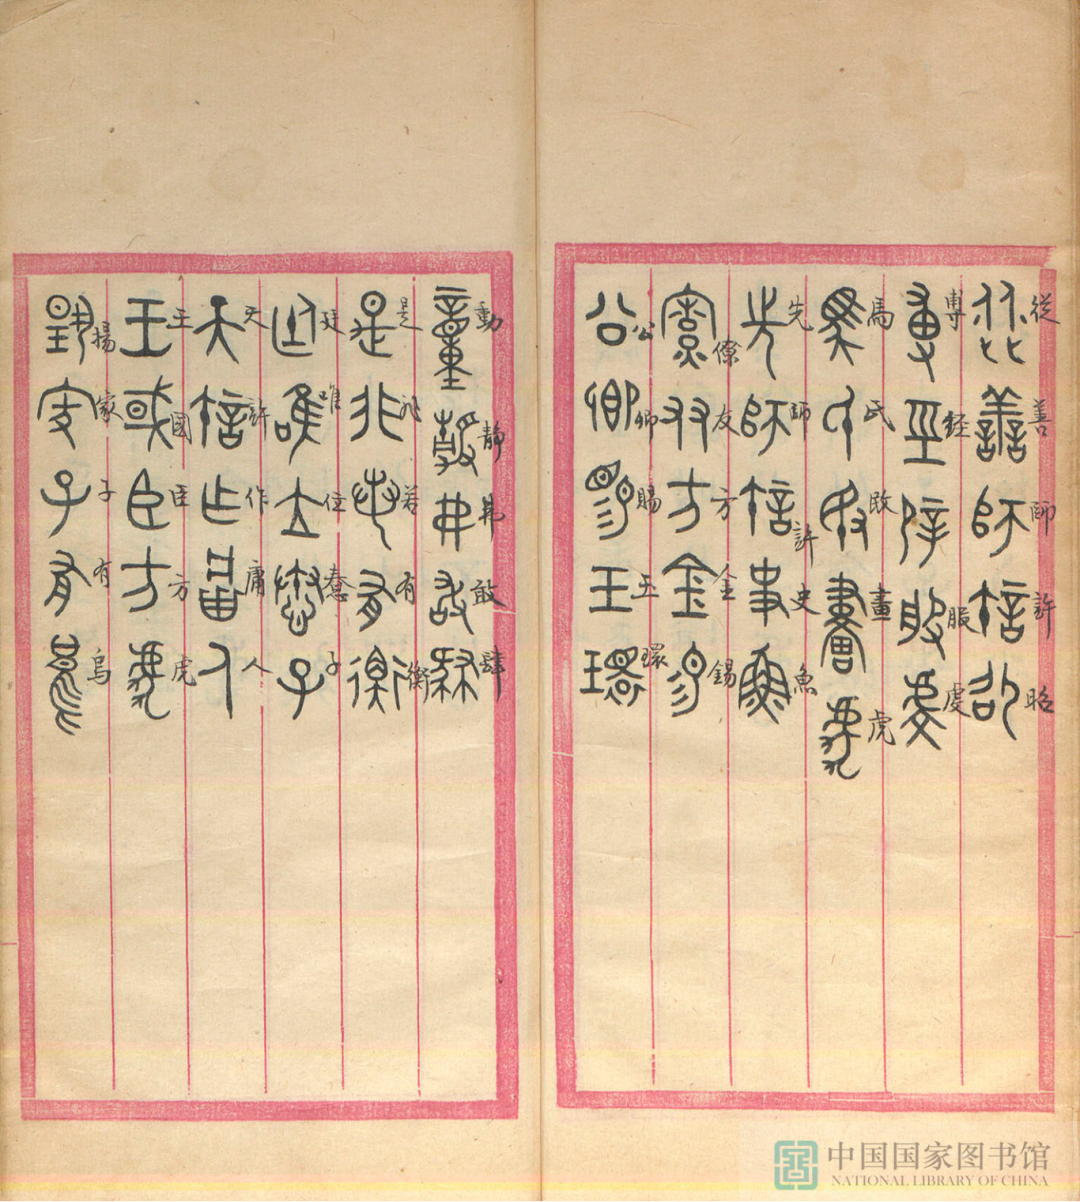 從善師許昭
專經服虔
馬氏改畫虎
先師許史魚
僚友方金錫
公卿賜玉環
動靜弗敢肆
是非若有衡
廷唯位惷子
天許作庸人
王國臣方虎
揚家子有烏
中国国家图书馆
NATIONAL LIBRARY OF CHINA